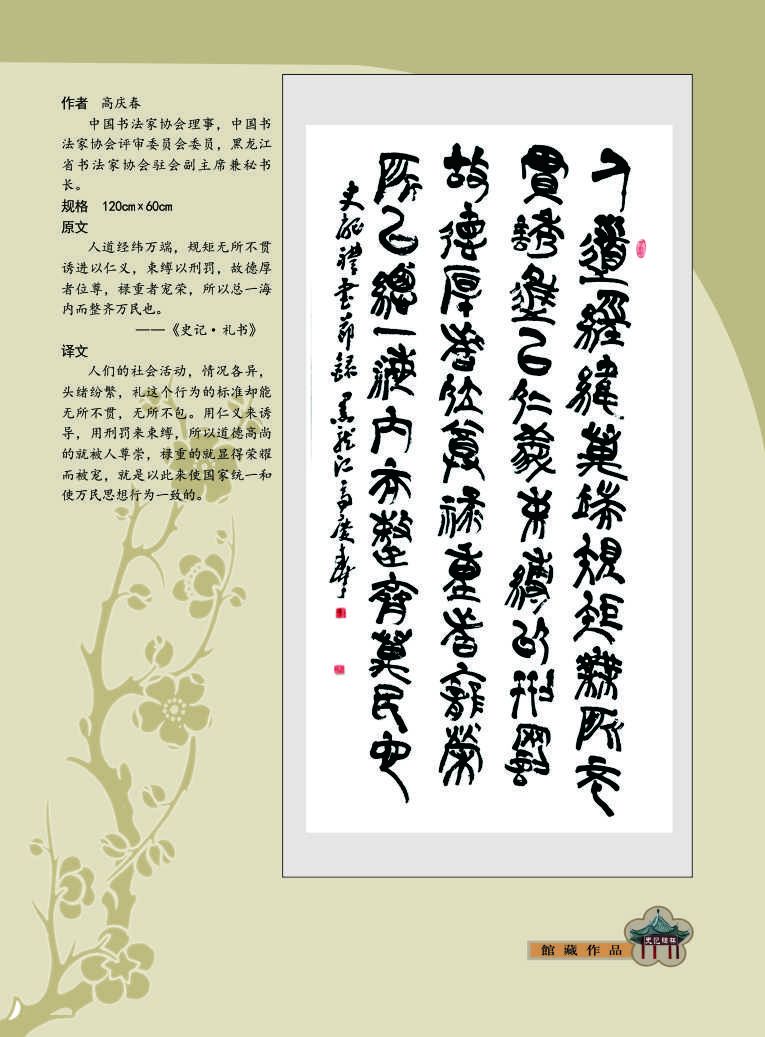 作者　高庆春
中国书法家协会理事，中国书
法家协会评审委员会委员，黑龙江
省书法家协会驻会副主席兼秘书
长。
规格　120cm×60cm
原文
人道经纬万端，规矩无所不贯
诱进以仁义，束缚以刑罚，故德厚
者位尊，禄重者宠荣，所以总一海
内而整齐万民也。
——《史记·礼书》
译文
人们的社会活动，情况各异，
头绪纷繁，礼这个行为的标准却能
无所不贯，无所不包。用仁义来诱
导，用刑罚来束缚，所以道德高尚
的就被人尊崇，禄重的就显得荣耀
而被宠，就是以此来使国家统一和
使万民思想行为一致的。
人道經緯萬端規矩無所不
貫誘進以仁義束縛以刑罰
故德厚者位尊祿重者寵榮
所以總一海内而整齊萬民也
史記禮書節錄 黑龍江高慶春
館藏作品
史記碑林